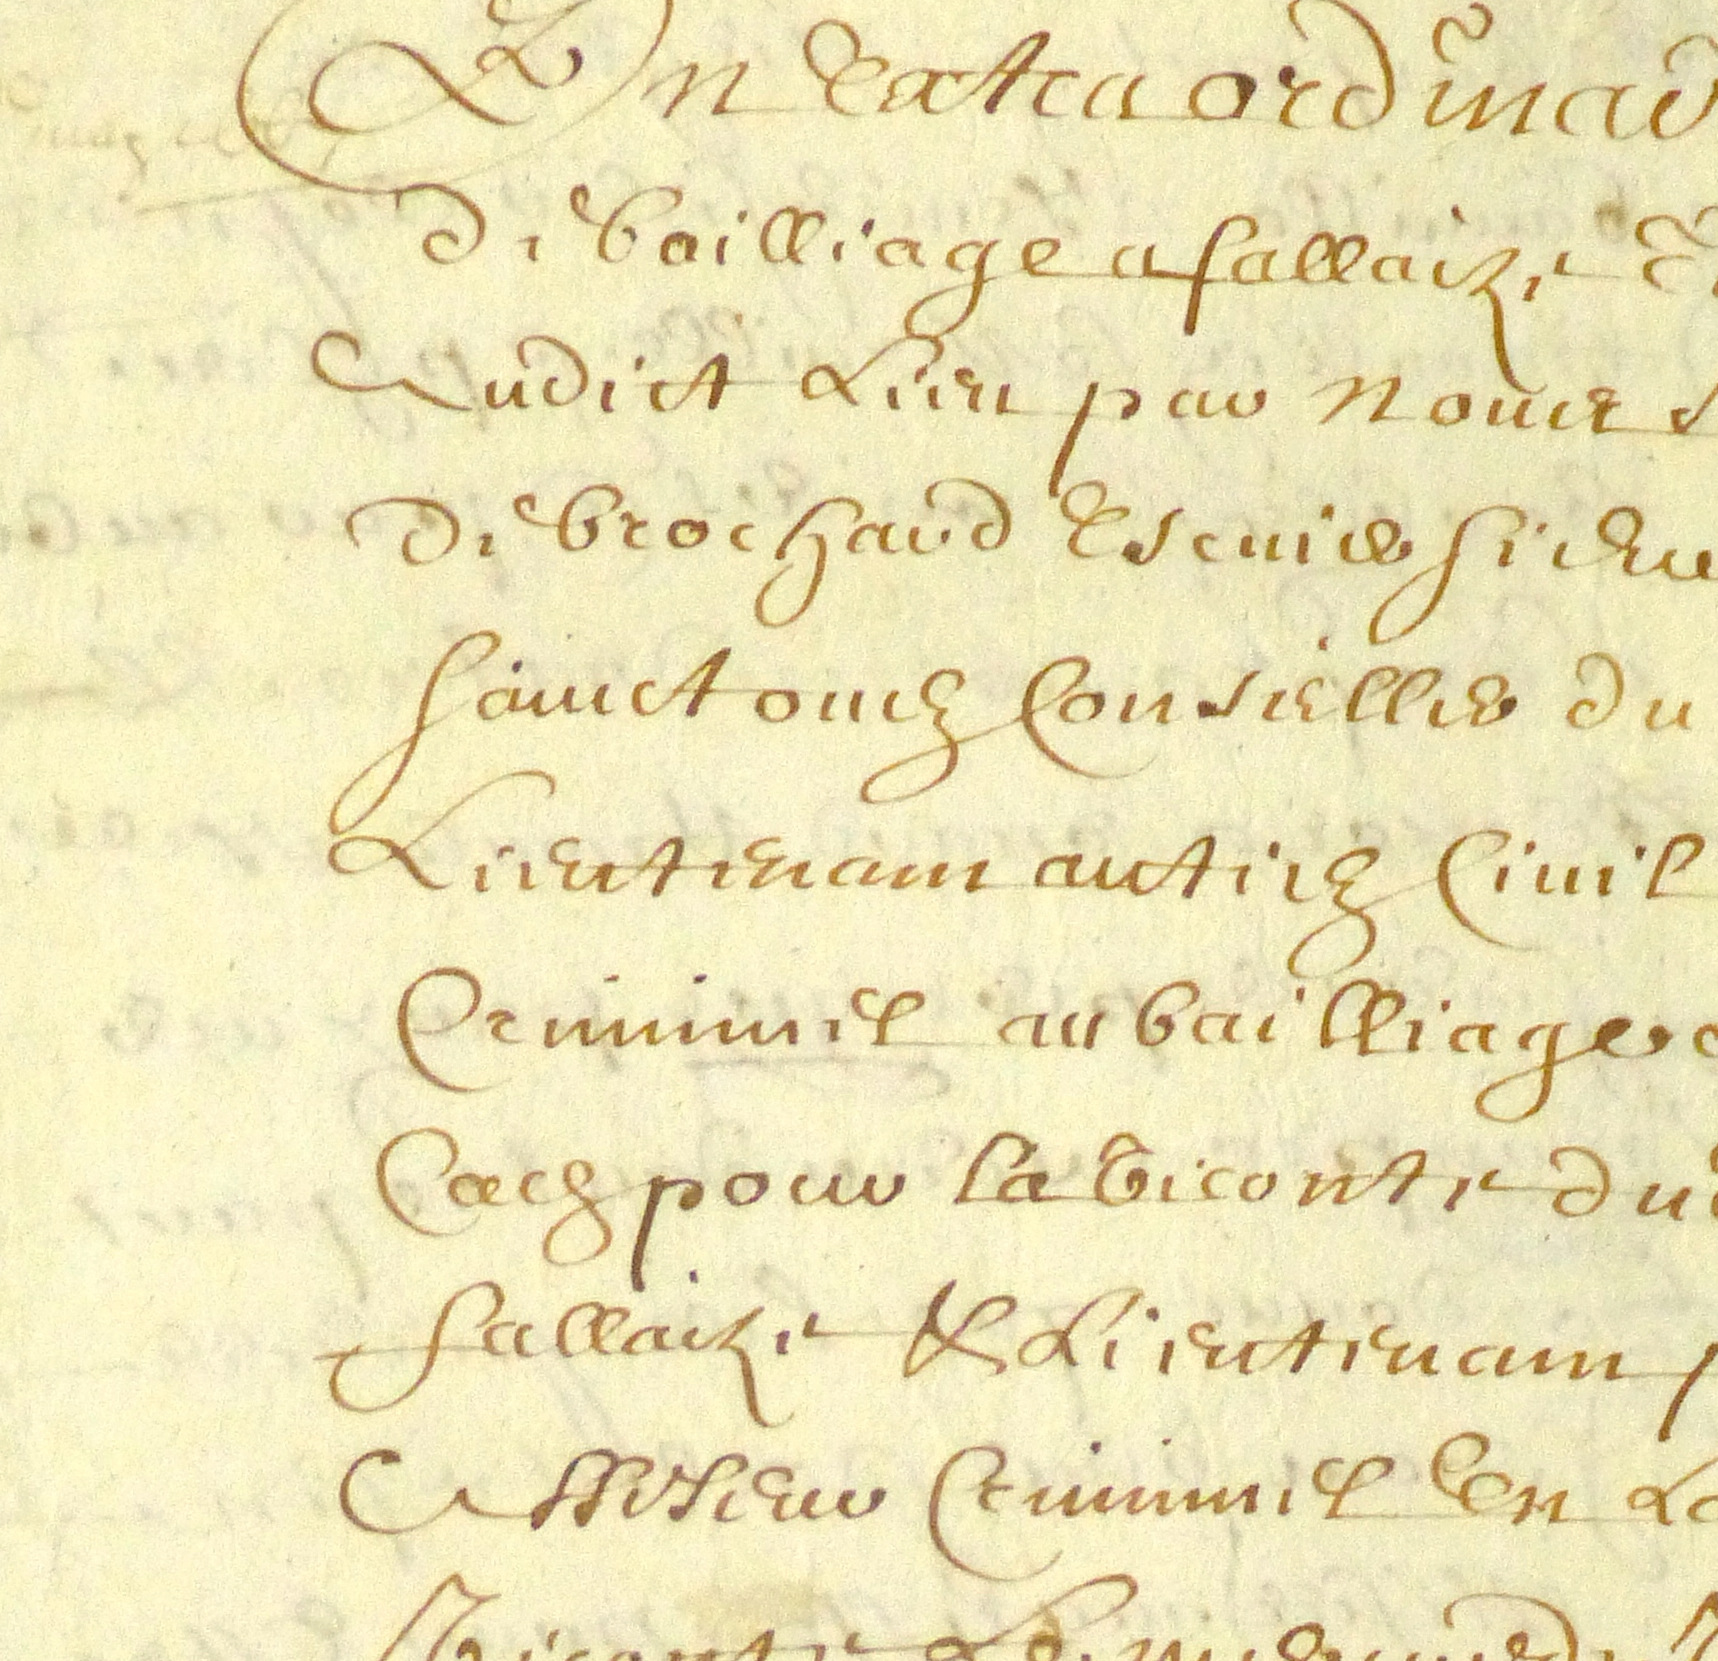 En Lextraordinair
de bailliage a fallaize Et
Audict Lieu par nous
de brochard Escuier sieur
sainctouen Conseiller du
Lieutenant antien Civil
Criminel au bailliage
Caen pour la Viconte dud
fallaize & Lieutenant p
Assesseur Criminel En La
Viconte Le mercredy